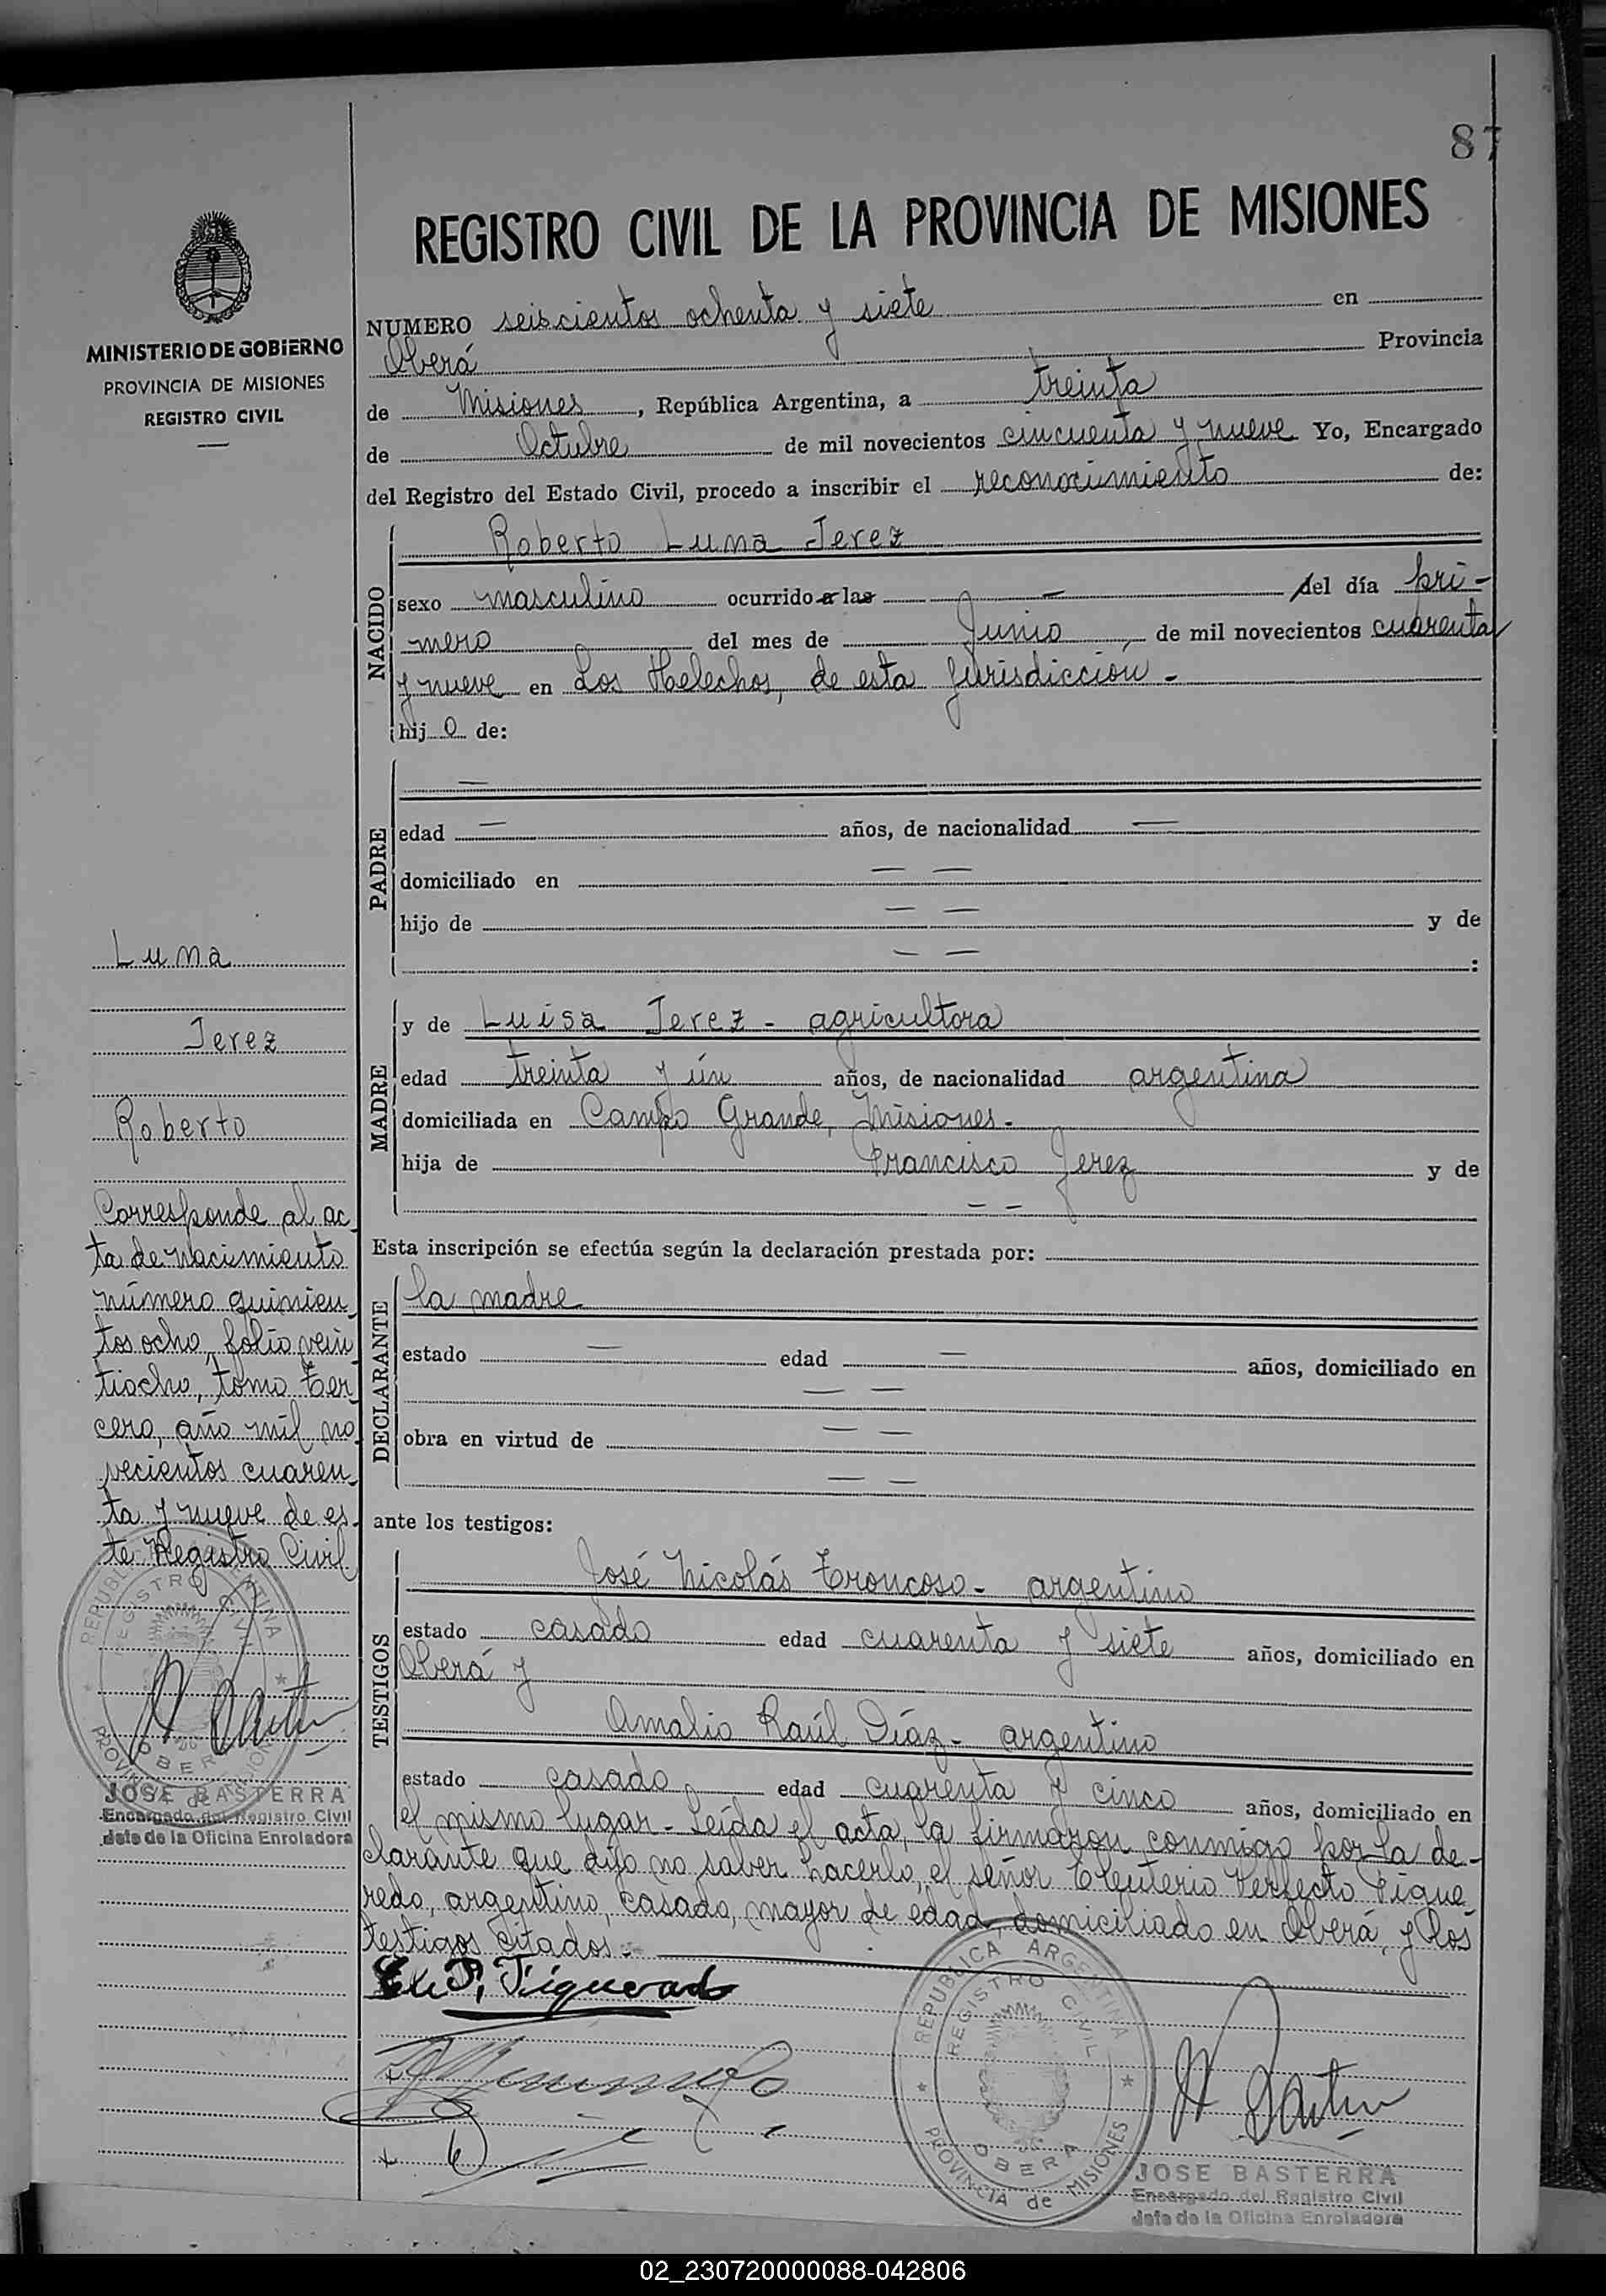 87
REGISTRO CIVIL DE LA PROVINCIA DE MISIONES
MINISTERIO DE GOBIERNO
PROVINCIA DE MISIONES
REGISTRO CIVIL
NUMERO seiscientos ochenta y siete en
Oberá Provincia
de Misiones, República Argentina, a treinta
de Octubre de mil novecientos cincuenta y nueve Yo, Encargado
del Registro del Estado Civil, procedo a inscribir el reconocimiento de:
NACIDO
Roberto Luna Jerez
sexo masculino ocurrido a las — del día pri-
mero del mes de Junio de mil novecientos cuarenta
y nueve en Los Helechos, de esta Jurisdicción -
hijo de:
PADRE
—
edad — años, de nacionalidad —
domiciliado en — —
hijo de — — y de
— — :
MADRE
y de Luisa Jerez - agricultora
edad treinta y ún años, de nacionalidad argentina
domiciliada en Campo Grande, Misiones.
hija de Francisco Jerez y de
— —
Esta inscripción se efectúa según la declaración prestada por:
DECLARANTE
la madre
estado — edad — años, domiciliado en
— —
obra en virtud de — —
— —
ante los testigos:
TESTIGOS
José Nicolás Troncoso - argentino
estado casado edad cuarenta y siete años, domiciliado en
Oberá y
Amalio Raúl Díaz - argentino
estado casado edad cuarenta y cinco años, domiciliado en
el mismo lugar - Leída el acta, la firmaron conmigo por la de-
clarante que dijo no saber hacerlo, el señor Eleuterio Perfecto Figue
redo, argentino, casado, mayor de edad, domiciliado en Oberá, y los
testigos citados.-
Ele P. Figueredo
REPUBLICA ARGENTINA
REGISTRO CIVIL
OBERA
PROVINCIA de MISIONES
JOSE BASTERRA
Encargado del Registro Civil
Jefe de la Oficina Enroladora
Luna
Jerez
Roberto
Corresponde al ac
ta de nacimiento
número quinien
tos ocho, folio vein
tiocho, tomo ter
cero, año mil no
vecientos cuaren
ta y nueve de es
te Registro Civil
REPUBLICA ARGENTINA
REGISTRO CIVIL
OBERA
PROVINCIA de MISIONES
JOSE BASTERRA
Encargado del Registro Civil
Jefe de la Oficina Enroladora
02_230720000088-042806